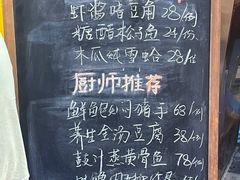 虾酱啫豆角 28/例
糖醋松子鱼 24/份
木瓜炖雪蛤 28/位
厨师推荐
鲜鲍焖猪手 68/例
养生金汤豆腐 38/例
豉汁蒸黄骨鱼 78/例